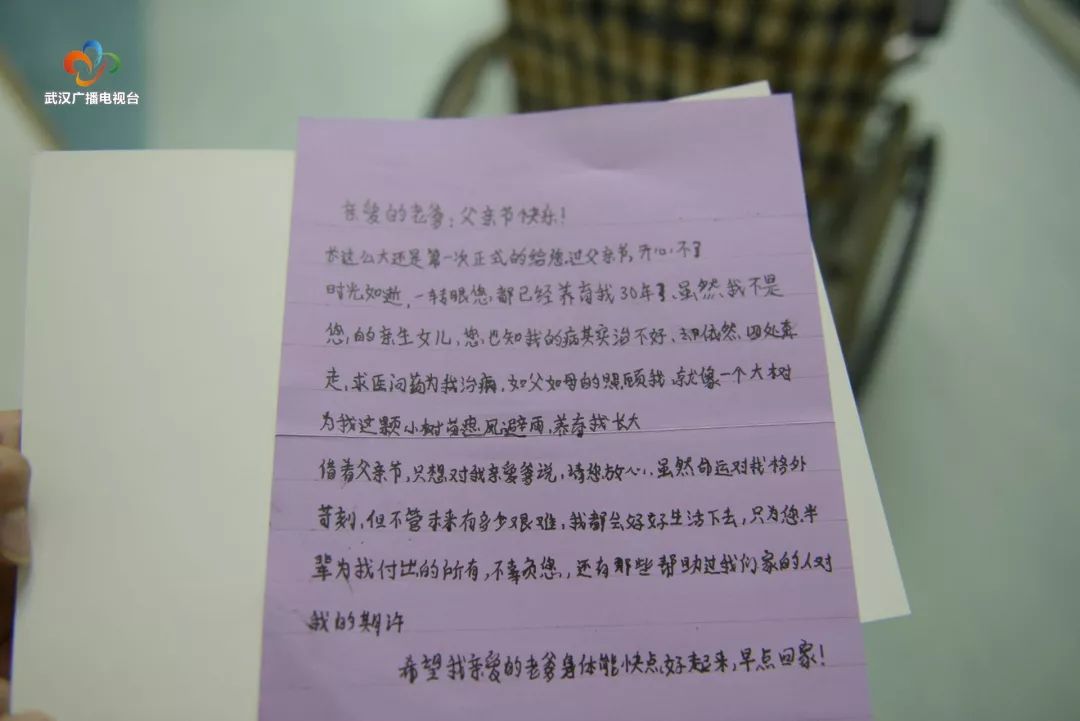 武汉广播电视台
亲爱的老爹：父亲节快乐！
长这么大还是第一次正式的给您过父亲节，开心不了
时光如逝，一转眼您都已经养育我30年了、虽然我不是
您的亲生女儿，您也知我的病其实治不好、却依然四处奔
走，求医问药为我治病，如父如母的照顾我，就像一个大树
为我这颗小树苗遮风避雨，养育我长大
借着父亲节，只想对我亲爱爹说，请您放心，虽然命运对我格外
苛刻，但不管未来有多少艰难，我都会好好生活下去，只为您半
辈为我付出的所有，不辜负您，还有那些帮助过我们家的人对
我的期许
希望我亲爱的老爹身体能快点好起来，早点回家！